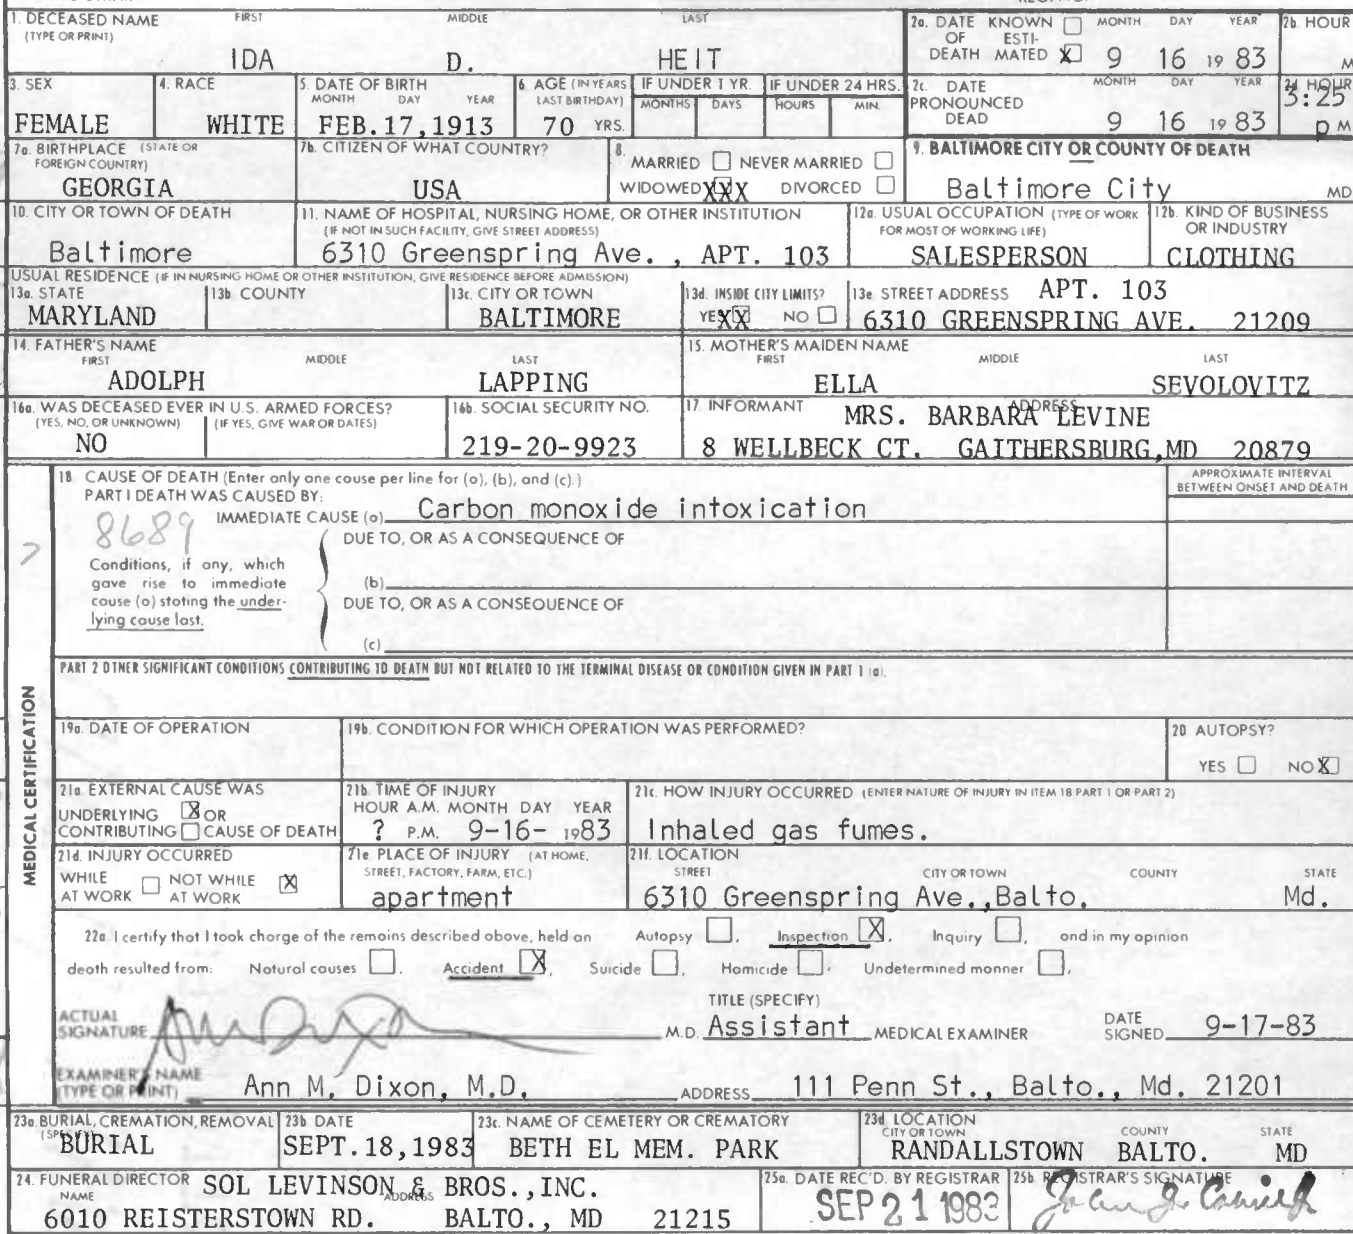 1. DECEASED NAME (TYPE OR PRINT) FIRST MIDDLE LAST
IDA D. HEIT
2a. DATE OF DEATH KNOWN ESTIMATED X MONTH DAY YEAR
9 16 19 83
2b. HOUR M
3. SEX
FEMALE
4. RACE
WHITE
5. DATE OF BIRTH MONTH DAY YEAR
FEB. 17, 1913
6. AGE (IN YEARS LAST BIRTHDAY)
70 YRS.
IF UNDER 1 YR. MONTHS DAYS
IF UNDER 24 HRS. HOURS MIN.
2c. DATE PRONOUNCED DEAD MONTH DAY YEAR
9 16 19 83
2d. HOUR
3:25 p M
7a. BIRTHPLACE (STATE OR FOREIGN COUNTRY)
GEORGIA
7b. CITIZEN OF WHAT COUNTRY?
USA
8. MARRIED NEVER MARRIED
WIDOWED XXX DIVORCED
9. BALTIMORE CITY OR COUNTY OF DEATH
Baltimore City MD
10. CITY OR TOWN OF DEATH
Baltimore
11. NAME OF HOSPITAL, NURSING HOME, OR OTHER INSTITUTION
(IF NOT IN SUCH FACILITY, GIVE STREET ADDRESS)
6310 Greenspring Ave. , APT. 103
12a. USUAL OCCUPATION (TYPE OF WORK FOR MOST OF WORKING LIFE)
SALESPERSON
12b. KIND OF BUSINESS OR INDUSTRY
CLOTHING
USUAL RESIDENCE (IF IN NURSING HOME OR OTHER INSTITUTION, GIVE RESIDENCE BEFORE ADMISSION)
13a. STATE
MARYLAND
13b COUNTY
13c. CITY OR TOWN
BALTIMORE
13d. INSIDE CITY LIMITS?
YES XX NO
13e STREET ADDRESS APT. 103
6310 GREENSPRING AVE. 21209
14. FATHER'S NAME FIRST MIDDLE LAST
ADOLPH LAPPING
15. MOTHER'S MAIDEN NAME FIRST MIDDLE LAST
ELLA SEVOLOVITZ
16a. WAS DECEASED EVER IN U.S. ARMED FORCES?
(YES, NO, OR UNKNOWN) (IF YES, GIVE WAR OR DATES)
NO
16b. SOCIAL SECURITY NO.
219-20-9923
17. INFORMANT ADDRESS
MRS. BARBARA LEVINE
8 WELLBECK CT. GAITHERSBURG,MD 20879
MEDICAL CERTIFICATION
18 CAUSE OF DEATH (Enter only one cause per line for (a), (b), and (c).)
APPROXIMATE INTERVAL BETWEEN ONSET AND DEATH
PART I DEATH WAS CAUSED BY:
8689
?
IMMEDIATE CAUSE (a) Carbon monoxide intoxication
DUE TO, OR AS A CONSEQUENCE OF
Conditions, if any, which gave rise to immediate cause (a) stating the underlying cause last.
(b)
DUE TO, OR AS A CONSEQUENCE OF
(c)
PART 2 OTHER SIGNIFICANT CONDITIONS CONTRIBUTING TO DEATH BUT NOT RELATED TO THE TERMINAL DISEASE OR CONDITION GIVEN IN PART 1 (a).
19a. DATE OF OPERATION
19b. CONDITION FOR WHICH OPERATION WAS PERFORMED?
20 AUTOPSY?
YES NO X
21a. EXTERNAL CAUSE WAS
UNDERLYING X OR
CONTRIBUTING CAUSE OF DEATH
21b. TIME OF INJURY
HOUR A.M. MONTH DAY YEAR
? P.M. 9-16- 1983
21c. HOW INJURY OCCURRED (ENTER NATURE OF INJURY IN ITEM 18 PART 1 OR PART 2)
Inhaled gas fumes.
21d. INJURY OCCURRED
WHILE AT WORK NOT WHILE AT WORK X
21e PLACE OF INJURY (AT HOME, STREET, FACTORY, FARM, ETC.)
apartment
21f. LOCATION STREET CITY OR TOWN COUNTY STATE
6310 Greenspring Ave.,Balto. Md.
22a. I certify that I took charge of the remains described above, held an Autopsy , Inspection X, Inquiry , and in my opinion
death resulted from: Natural causes , Accident X, Suicide , Homicide , Undetermined manner ,
ACTUAL SIGNATURE Ann Dixon M.D.
TITLE (SPECIFY)
Assistant MEDICAL EXAMINER
DATE SIGNED 9-17-83
EXAMINER'S NAME (TYPE OR PRINT) Ann M. Dixon, M.D.
ADDRESS 111 Penn St., Balto., Md. 21201
23a. BURIAL, CREMATION, REMOVAL
BURIAL
23b DATE
SEPT.18,1983
23c. NAME OF CEMETERY OR CREMATORY
BETH EL MEM. PARK
23d LOCATION CITY OR TOWN COUNTY STATE
RANDALLSTOWN BALTO. MD
24. FUNERAL DIRECTOR NAME ADDRESS
SOL LEVINSON & BROS.,INC.
6010 REISTERSTOWN RD. BALTO., MD 21215
25a. DATE REC'D. BY REGISTRAR
SEP 21 1983
25b. REGISTRAR'S SIGNATURE